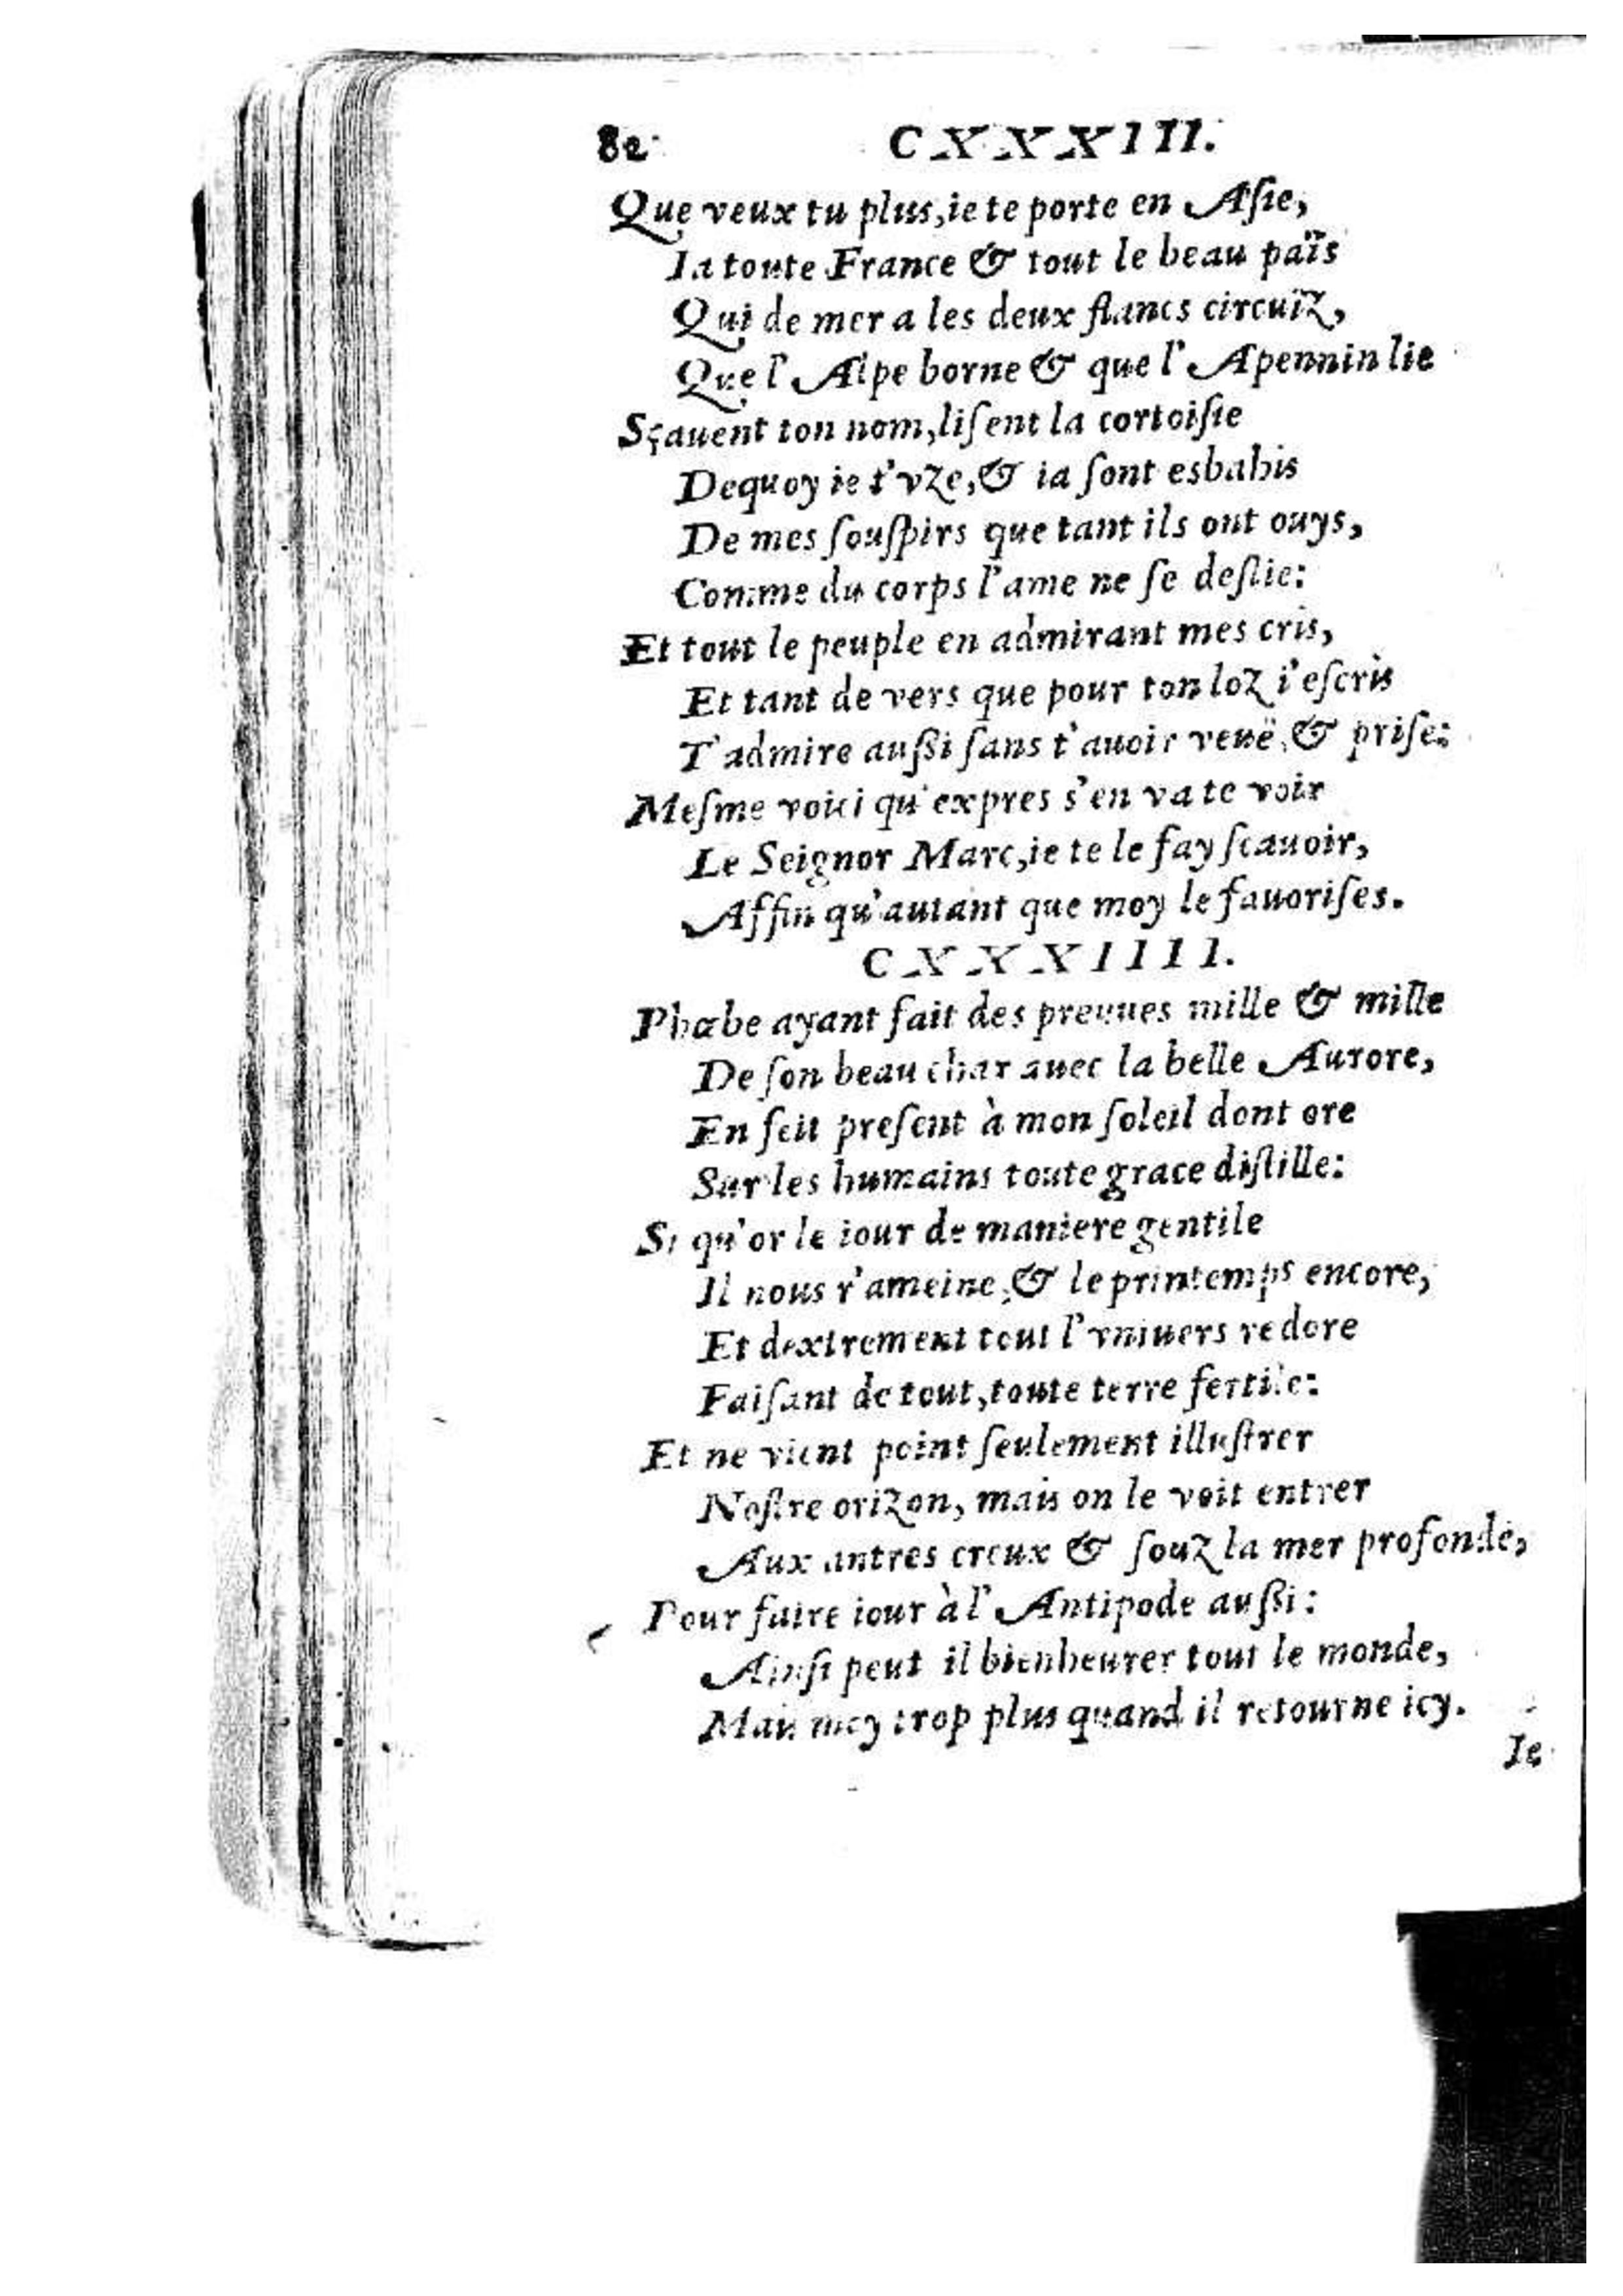 82 CXXXIII.
Que veux tu plus, ie te porte en Aſie,
Ia toute France & tout le beau païs
Qui de mer a les deux flancs circuïz,
Que l'Alpe borne & que l'Apennin lie
Sçauent ton nom, liſent la cortoiſie
Dequoy ie t'vze, & ia ſont esbahis
De mes ſouſpirs que tant ils ont ouys,
Comme du corps l'ame ne ſe deſlie:
Et tout le peuple en admirant mes cris,
Et tant de vers que pour ton loz i'eſcris
T'admire auſſi ſans t'auoir veuë, & priſe:
Meſme voici qu'expres s'en va te voir
Le Seignor Marc, ie te le fay ſcauoir,
Affin qu'autant que moy le fauoriſes.
CXXXIIII.
Phœbe ayant fait des preuues mille & mille
De ſon beau char auec la belle Aurore,
En feit preſent à mon ſoleil dont ore
Sur les humains toute grace diſtille:
Si qu'or le iour de maniere gentile
Il nous r'ameine, & le printemps encore,
Et dextrement tout l'vniuers redore
Faiſant de tout, toute terre fertile:
Et ne vient point ſeulement illuſtrer
Noſtre orizon, mais on le voit entrer
Aux antres creux & ſouz la mer profonde,
Pour faire iour à l'Antipode auſſi:
Ainſi peut il bienheurer tout le monde,
Mais moy trop plus quand il retourne icy.
Ie